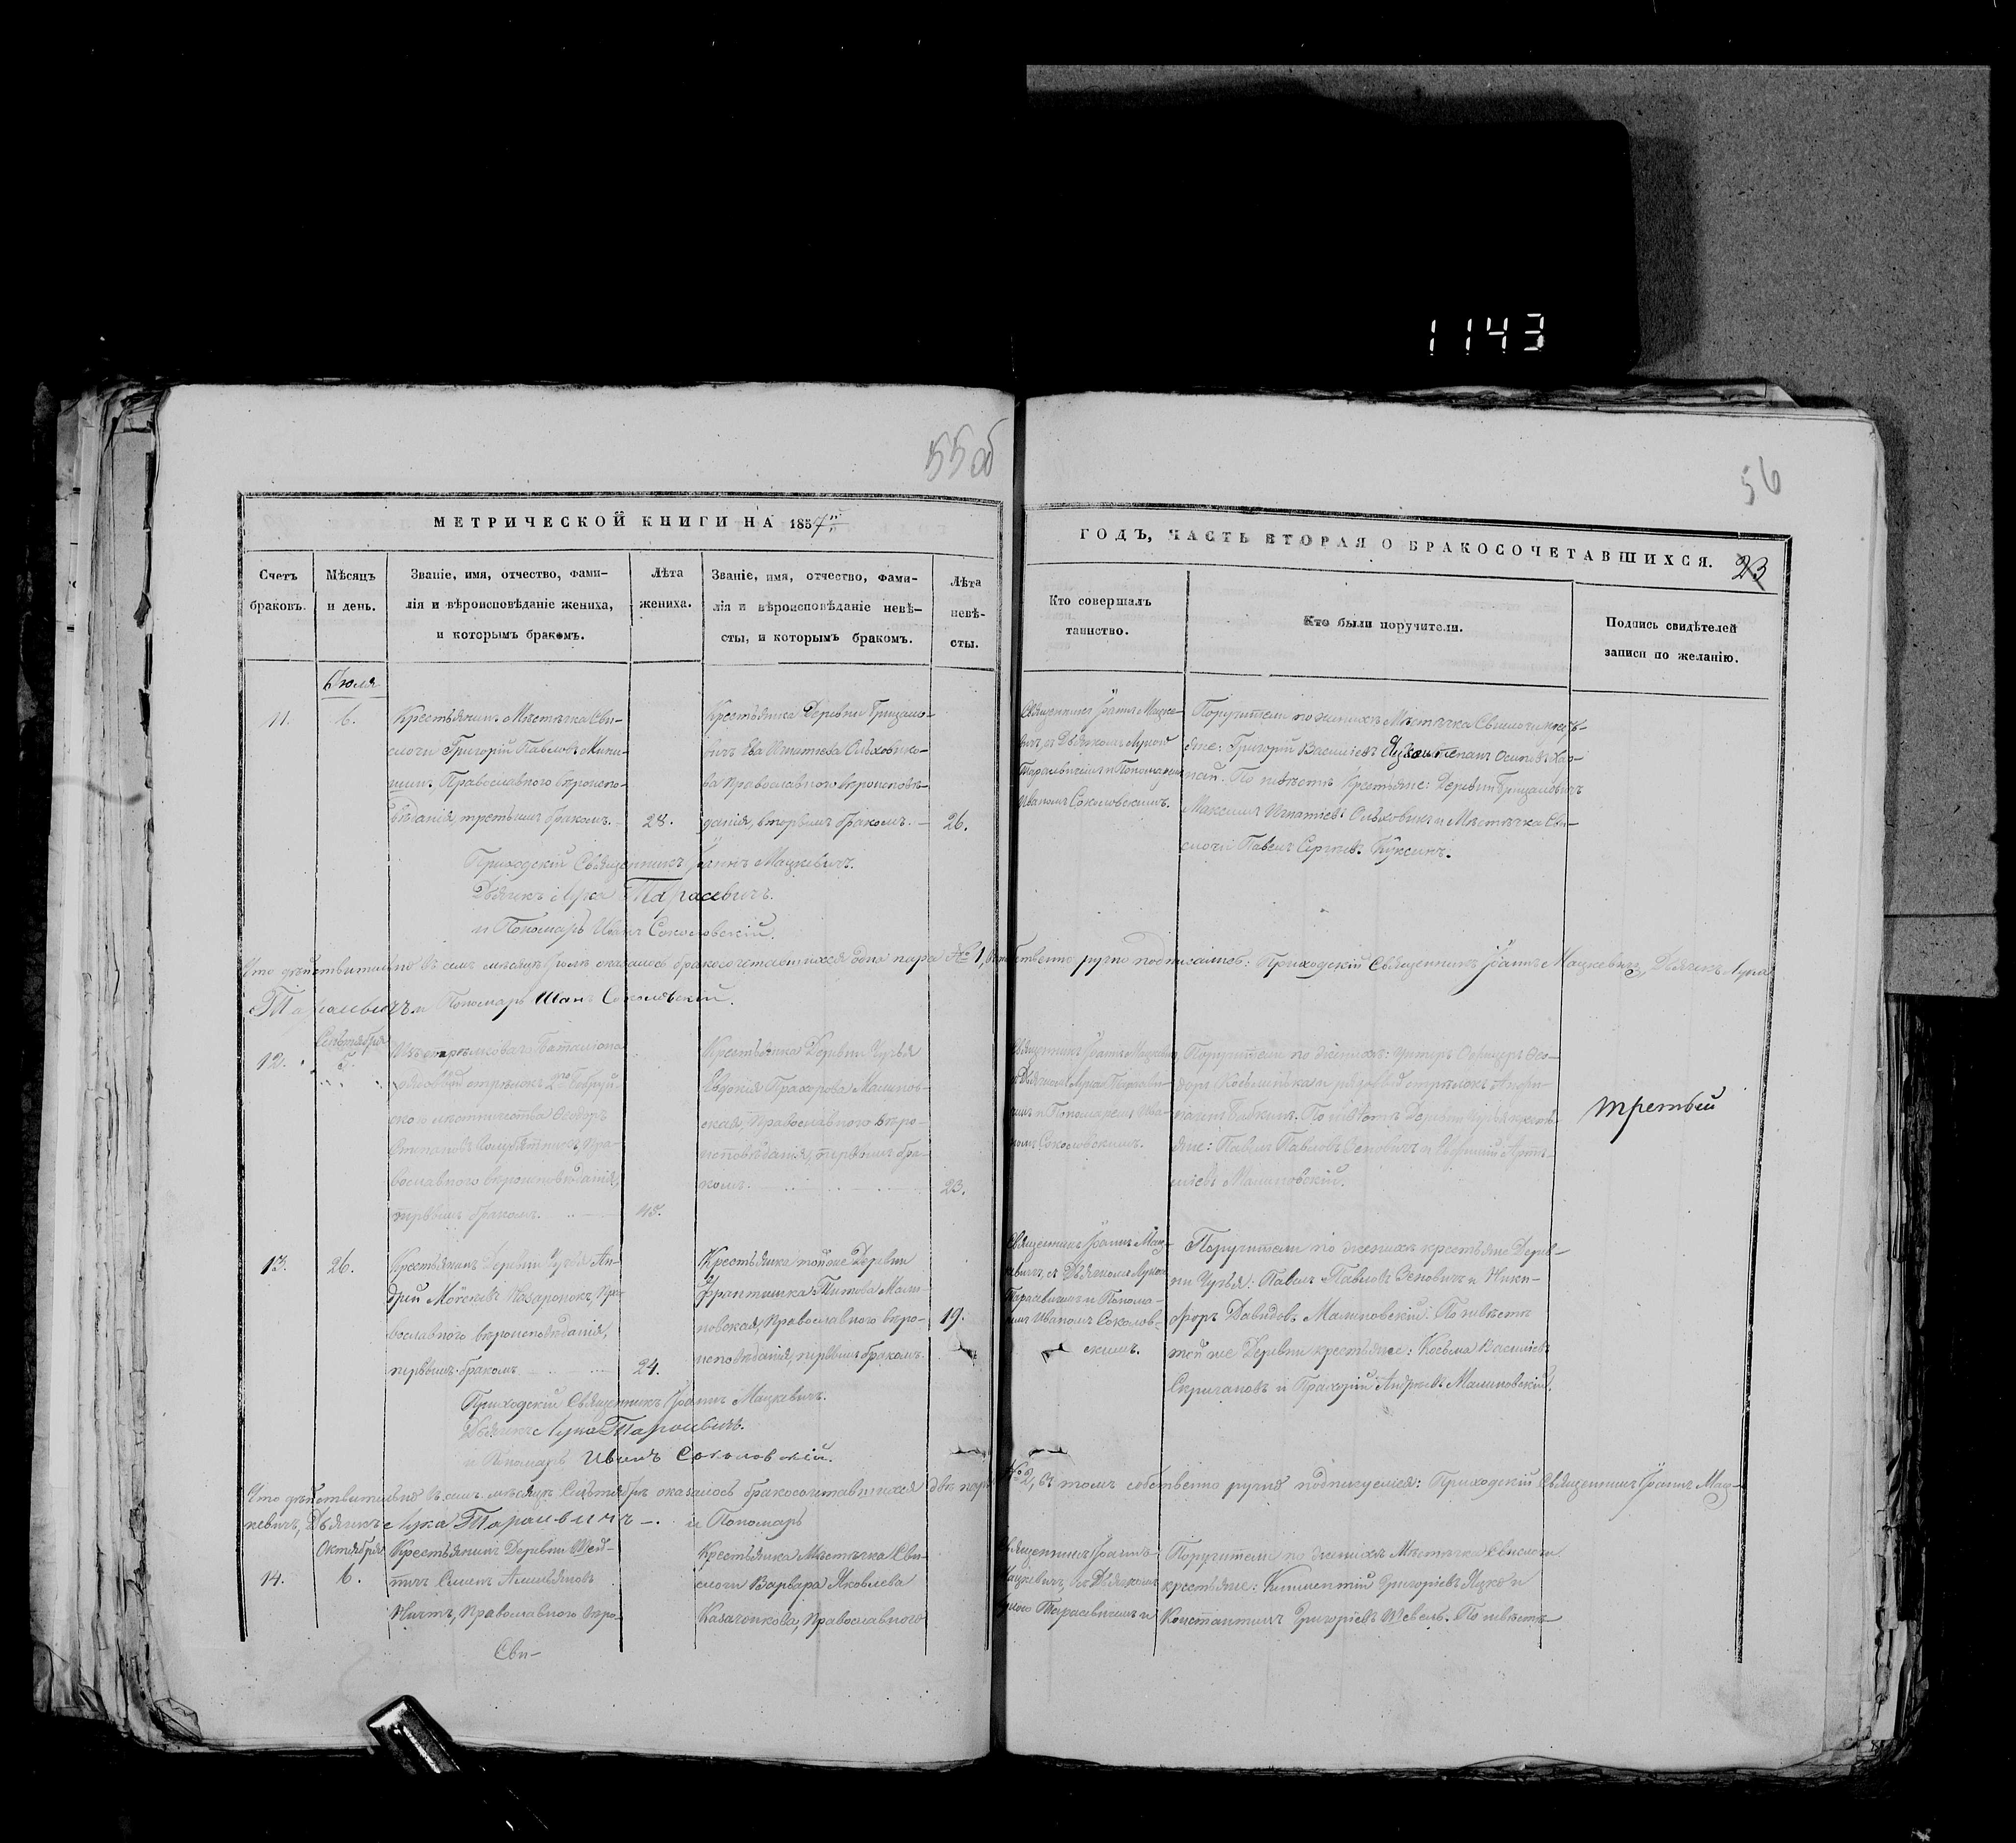 1143
55 об
56
МЕТРИЧЕСКОЙ КНИГИ НА 1857
ГОДЪ, ЧАСТЬ ВТОРАЯ О БРАКОСОЧЕТАВШИХСЯ. 23
Счетъ браковъ.
Мѣсяцъ и день.
Званіе, имя, отчество, фами-
лія и вѣроисповѣданіе жениха,
и которымъ бракомъ.
Лѣта
жениха.
Званіе, имя, отчество, фами-
лія и вѣроисповѣданіе невѣ-
сты, и которымъ бракомъ.
Лѣта
невѣ-
сты.
Кто совершалъ
таинство.
Кто были поручители.
Подпись свидѣтелей
записи по желанію.
Іюля
11.
6.
Крестьянинъ Мѣстечка Сви-
слочи Григорій Павловъ
Православнаго вѣроиспо-
вѣданія, третьимъ бракомъ.
28.
Крестьянка Деревни
Ева Игнатіева Ольховико-
ва Православнаго вѣроисповѣ-
данія, вторымъ бракомъ.
26.
Священникъ Іоаннъ Мацке-
вичъ, съ Дьячкомъ Лукою
Тарасевичемъ и Пономаремъ
Иваномъ Соколовскимъ.
Поручители по женихѣ Мѣстечка Свислочи
Григорій Василіевъ Степанъ Осиповъ
По невѣстѣ Крестьяне: Деревни
Максимъ Игнатіевъ Ольховикъ и Мѣстечка Сви-
слочи Павелъ Сергіевъ Куксинъ.
Приходскій Священникъ Іоаннъ Мацкевичъ.
Дьячекъ Лука Тарасевичъ.
и Пономарь Иванъ Соколовскій.
Что дѣйствительно въ семъ мѣсяцѣ Іюлѣ оказалось бракосочетавшихся одна пара № 1, собственно ручно подписались: Приходскій Священникъ Іоаннъ Мацкевичъ, Дьячекъ Лука
Тарасевичъ и Пономарь Иванъ Соколовскій.
Сентября
12.
баталіона
рядовый стрѣлокъ 2го
Ѳедоръ
Степановъ Пра-
вославнаго вѣроисповѣданія,
первымъ бракомъ.
Крестьянка Деревни Чуръя
Евдокія Прохорова Малинов-
ская, Православнаго вѣро-
исповѣданія, первымъ бра-
комъ.
23.
Священникъ Іоаннъ Мацкевичъ
съ Дьячкомъ Лукою Тарасеви-
чемъ и Пономаремъ Ива-
номъ Соколовскимъ.
Поручители по женихѣ: унтеръ Офицеръ
и рядовый стрѣлокъ
По невѣстѣ Деревни Чуръя кресть-
яне: Павелъ Павловъ Зеновичъ и
Малиновскій.
третьи
13.
26.
Крестьянинъ Деревни Чуръя Ан-
дрей Моисеевъ Назаронокъ, Пра-
вославнаго вѣроисповѣданія,
первымъ бракомъ
24.
Крестьянка тойже Деревни
Францишка Титова Мали-
новская, Православнаго вѣро-
исповѣданія, первымъ бракомъ.
19.
Священникъ Іоаннъ Мац-
кевичъ, съ Дьячкомъ Лукою
Тарасевичемъ и Понома-
ремъ Иваномъ Соколов-
скимъ.
Поручители по женихѣ крестьяне Дерев-
ни Чуръя: Павелъ Павловъ Зеновичъ и Ники-
форъ Давидовъ Малиновскій. По невѣстѣ
той же Деревни крестьяне: Косьма Василіевъ
Скригановъ и Прохорій Андреевъ Малиновскій.
Приходскій Священникъ Іоаннъ Мацкевичъ.
Дьячекъ Лука Тарасевичъ.
и Пономарь Иванъ Соколовскій.
Что дѣйствительно въ семъ мѣсяцѣ Сентябрѣ оказалось бракосочетавшихся двѣ пары № 2, въ томъ собственно ручно подписуемся: Приходскій Священникъ Іоаннъ Мац-
кевичъ, Дьячекъ Лука Тарасевичъ и Пономарь
Октября
14.
6.
Крестьянинъ Деревни
Семенъ
Православнаго вѣро-
Крестьянка Мѣстечка Сви-
слочи Варвара Яковлева
Казачонкова, Православнаго
Священникъ Іоаннъ
Мацкевичъ, съ Дьячкомъ
Лукою Тарасевичемъ и
Поручители по женихѣ Мѣстечка Свислочи
крестьяне: Климентій Григорієвъ Яцко и
Константинъ Григоріевъ Шевель. По невѣстѣ
Сви-